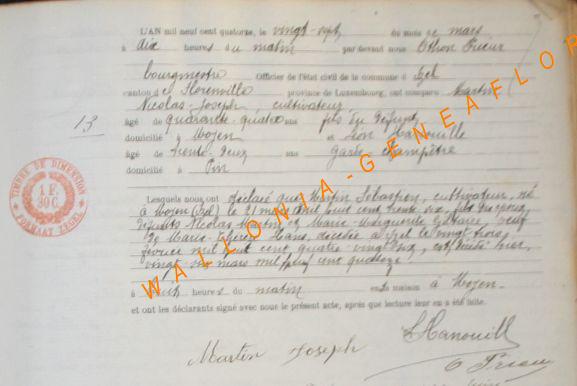 L'AN mil neuf cent quatorze, le vingt-sept du mois de mars
à dix heures du matin par devant nous Othon Prieur
bourgmestre Officier de l'état civil de la commune d'Izel
canton de Florenville province de Luxembourg, ont comparu Martin
Nicolas-Joseph cultivateur
13
âgé de quarante-quatre ans fils du défunt
domicilié à Moyen et Léon Hanouille
âgé de trente-deux ans Garde-champêtre
domicilié à Pin
TIMBRE DE DIMENSION
1 F.
30 C.
FORMAT LÉGAL
Lesquels nous ont déclaré que Martin Sébastien, cultivateur, né
à Moyen (Izel) le 21 mai mil huit cent trente six, fils des époux
défunts Nicolas Martin et Marie Marguerite, veuf
de Marie-Thérèse Hans, décédée à Izel le vingt trois
février mil huit cent quatre vingt dix, est décédé hier,
vingt-six mars mil neuf cent quatorze
à huit heures du matin en sa maison à Moyen.
et ont les déclarants signé avec nous le présent acte, après que lecture leur en a été faite.
L Hanouill
Martin Joseph
O Prieur
WALLONIA-GENEAFLOR